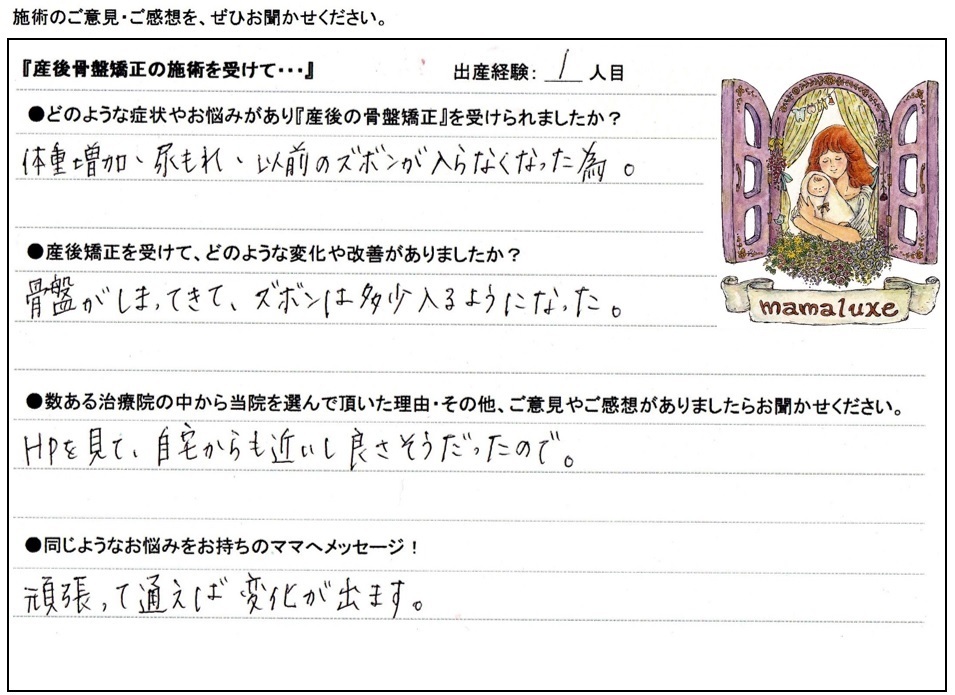 施術のご意見・ご感想を、ぜひお聞かせください。
『産後骨盤矯正の施術を受けて・・・』 出産経験： 1 人目
●どのような症状やお悩みがあり『産後の骨盤矯正』を受けられましたか？
体重増加、尿もれ、以前のズボンが入らなくなった為。
●産後矯正を受けて、どのような変化や改善がありましたか？
骨盤がしまってきて、ズボンは多少入るようになった。
mamaluxe
●数ある治療院の中から当院を選んで頂いた理由・その他、ご意見やご感想がありましたらお聞かせください。
HPを見て、自宅からも近いし良さそうだったので。
●同じようなお悩みをお持ちのママへメッセージ！
頑張って通えば変化が出ます。